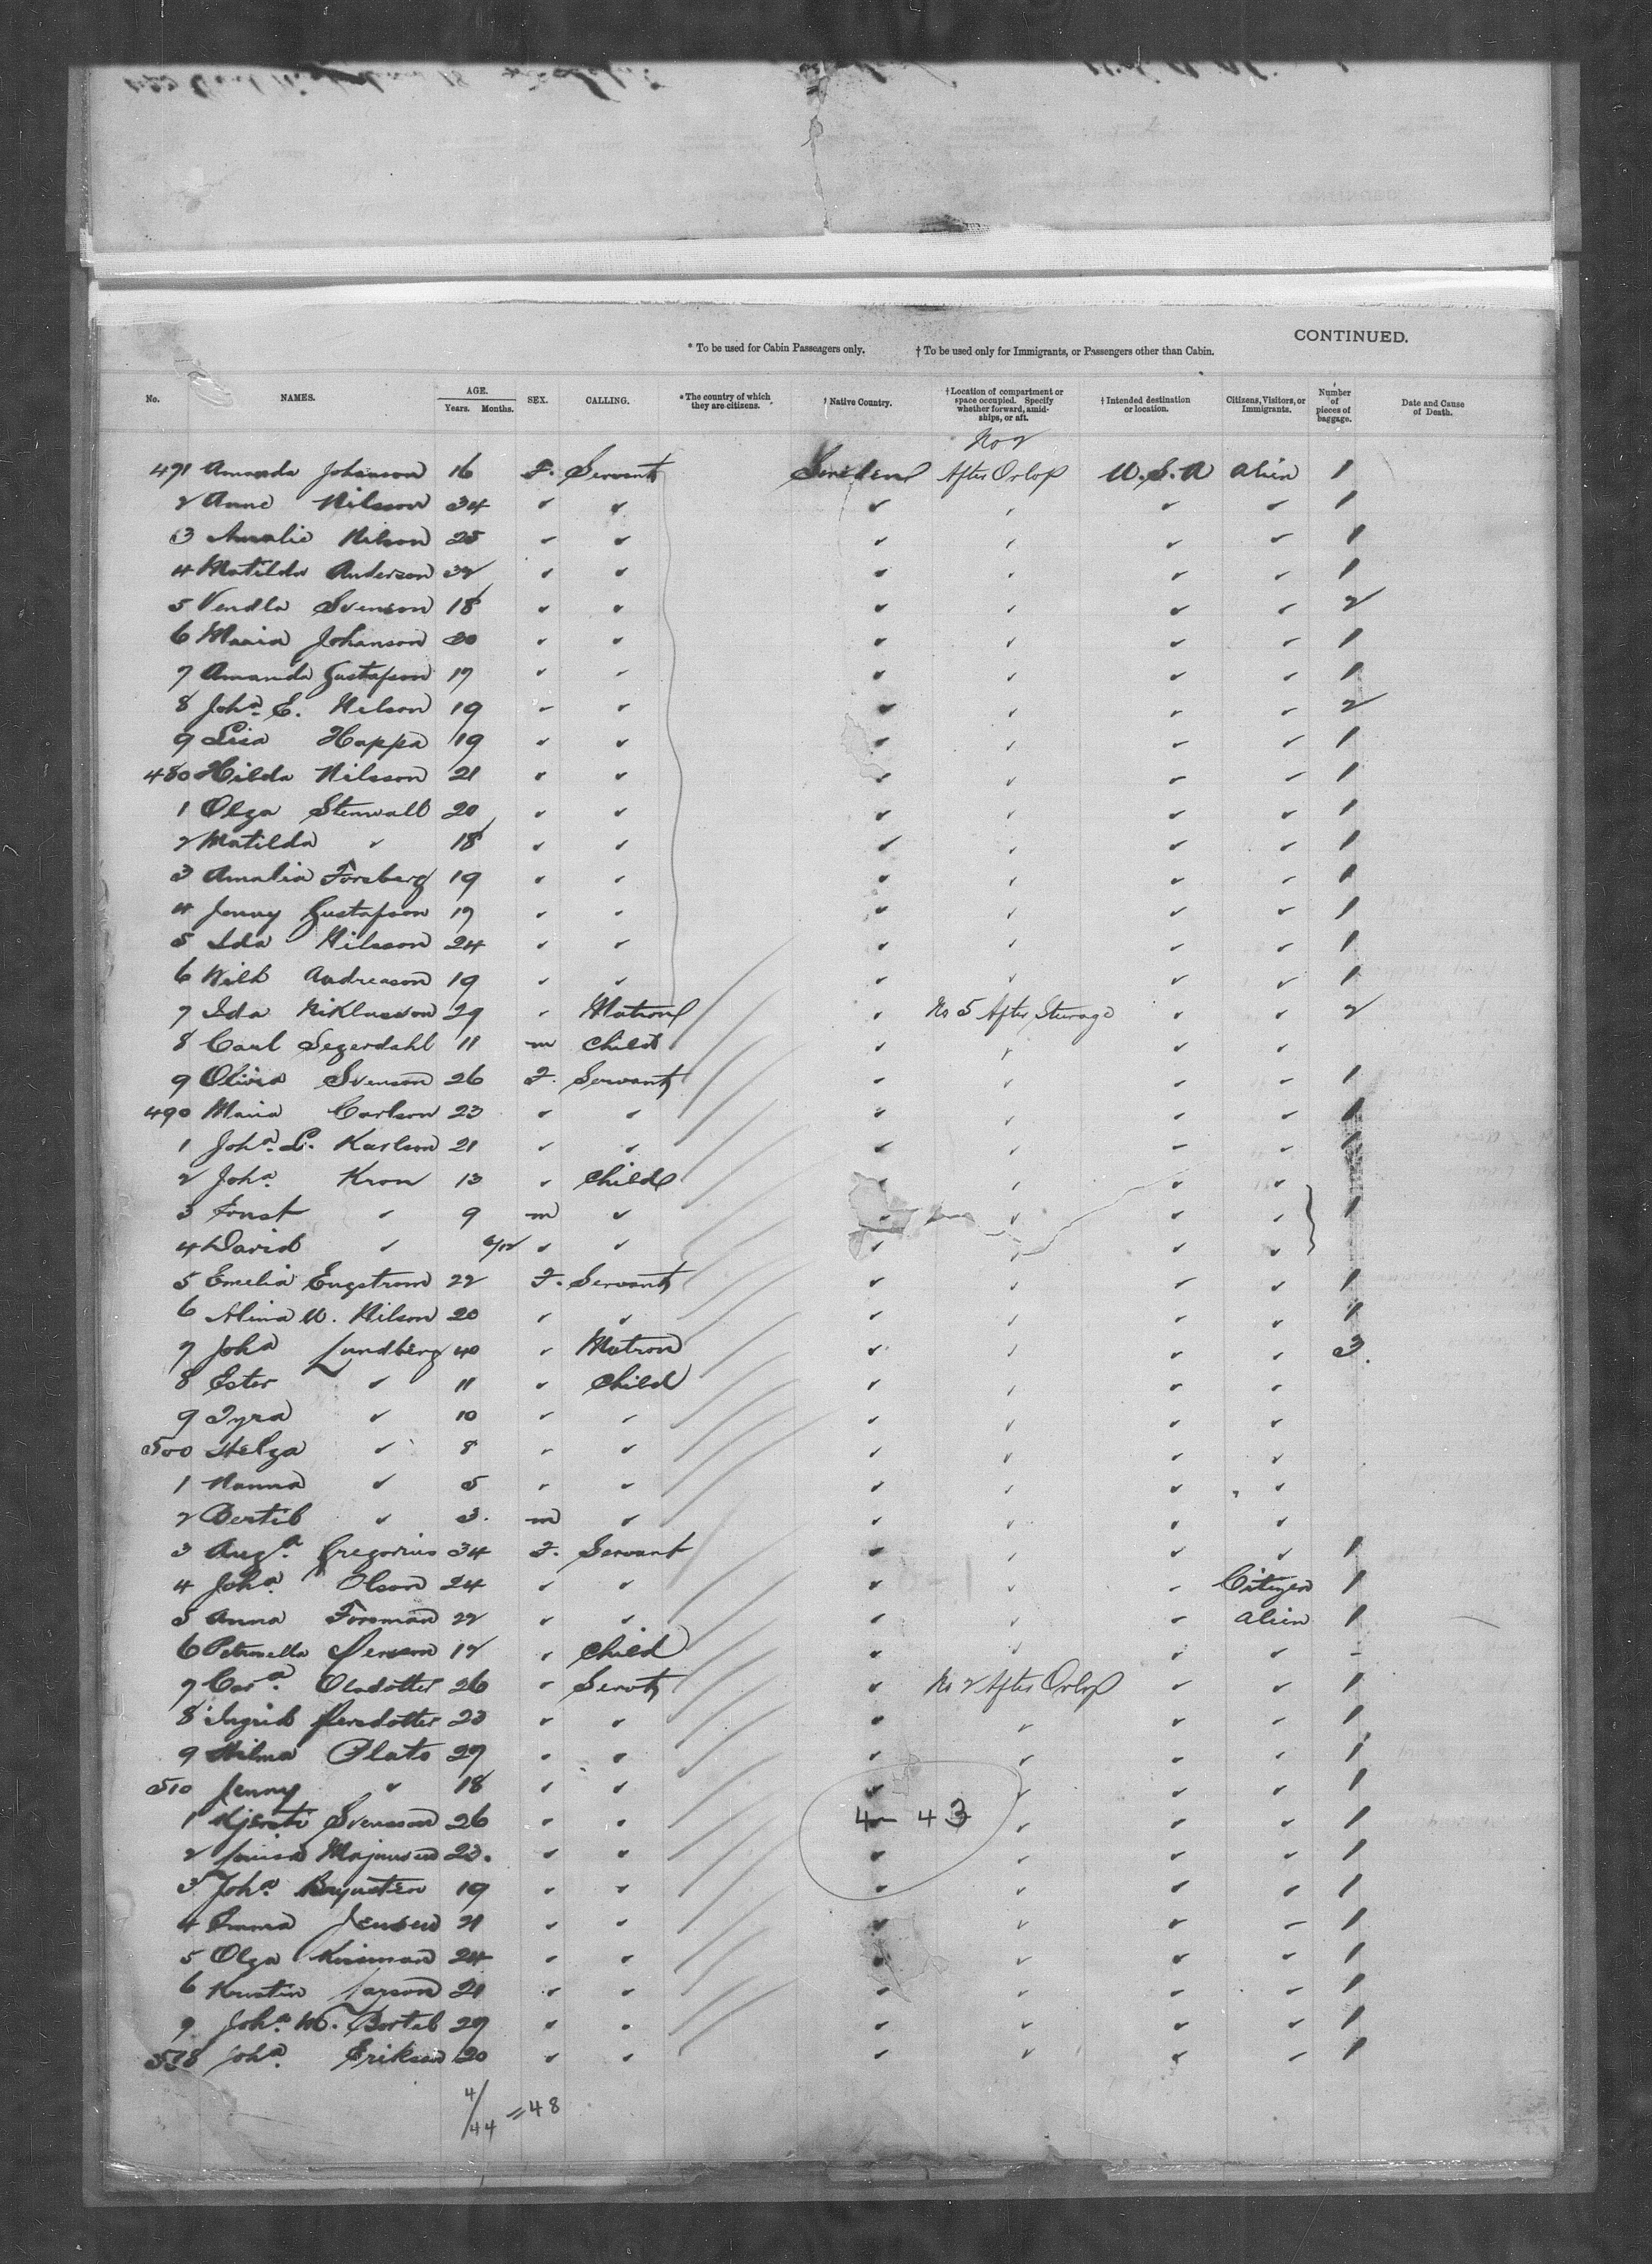 CONTINUED.
* To be used for Cabin Passengers only. † To be used only for Immigrants, or Passengers other than Cabin.
No. NAMES. AGE. Years. Months. SEX. CALLING. * The country of which they are citizens. † Native Country. † Location of compartment or space occupied. Specify whether forward, amidships, or aft. † Intended destination or location. Citizens, Visitors, or Immigrants. Number of pieces of baggage. Date and Cause of Death.
No 2
471 Amanda Johanson 16 F. Servant Sweden After Orlop U.S.A Alien 1
2 Anne Nilsson 34 " " " " " " 1
3 Amalie Nilson 25 " " " " " " 1
4 Matilda Anderson 32 " " " " " " 1
5 Vendla Svenson 18 " " " " " " 2
6 Maria Johanson 20 " " " " " " 1
7 Amanda Gustafson 17 " " " " " " 1
8 Joha. E. Nilson 19 " " " " " " 2
9 Lisa Happa 19 " " " " " " 1
480 Hilda Nilsson 21 " " " " " " 1
1 Olga Stenwall 20 " " " " " " 1
2 Matilda " 18 " " " " " " 1
3 Amalia Forsberg 19 " " " " " " 1
4 Jenny Gustafson 17 " " " " " " 1
5 Ida Nilsson 24 " " " " " " 1
6 Wilh Andreason 19 " " " " " " 1
7 Ida Niklasson 29 " Matron " No 5 After Sterage " " 2
8 Carl Segerdahl 11 m Child " " " "
9 Olivia Svenson 26 F. Servant " " " " 1
490 Maria Carlson 23 " " " " " " 1
1 Joha. L. Karlson 21 " " " " " " 1
2 Joha. Kron 13 " Child " " " "
3 Ernst " 9 m " " " " " 1
4 David " 6/12 " " " " " "
5 Emelia Engstrom 22 F. Servant " " " " 1
6 Alina W. Nilson 20 " " " " " " 1
7 Joha Lundberg 40 " Matron " " " " 3
8 Ester " 11 " Child " " " "
9 Tyra " 10 " " " " " "
500 Helga " 8 " " " " " "
1 Nanna " 5 " " " " " "
2 Bertil " 3 m " " " " "
3 Auga. Gregorius 34 F. Servant " " " " 1
4 Joha. Olson 24 " " " " " Citizen 1
5 Anna Forsman 22 " " " " " Alien 1
6 Petronella Person 12 " Child " " " " -
7 Cara Olsdotter 26 " Servt " No 2 After Orlop " " 1
8 Ingrid Persdotter 23 " " " " " " 1
9 Hilma Plato 27 " " " " " " 1
510 Jenny " 18 " " " " " " 1
1 Kjersti Svensson 26 " " " " " " 1
4 - 43
2 Louisa 23 " " " " " " 1
3 Joha. 19 " " " " " " 1
4 Emma Jensen 21 " " " " " " 1
5 Olga 24 " " " " " " 1
6 Kristin Larson 21 " " " " " " 1
7 Joha. W. 27 " " " " " " 1
518 Joha. Erikson 20 " " " " " " 1
4/44 = 48